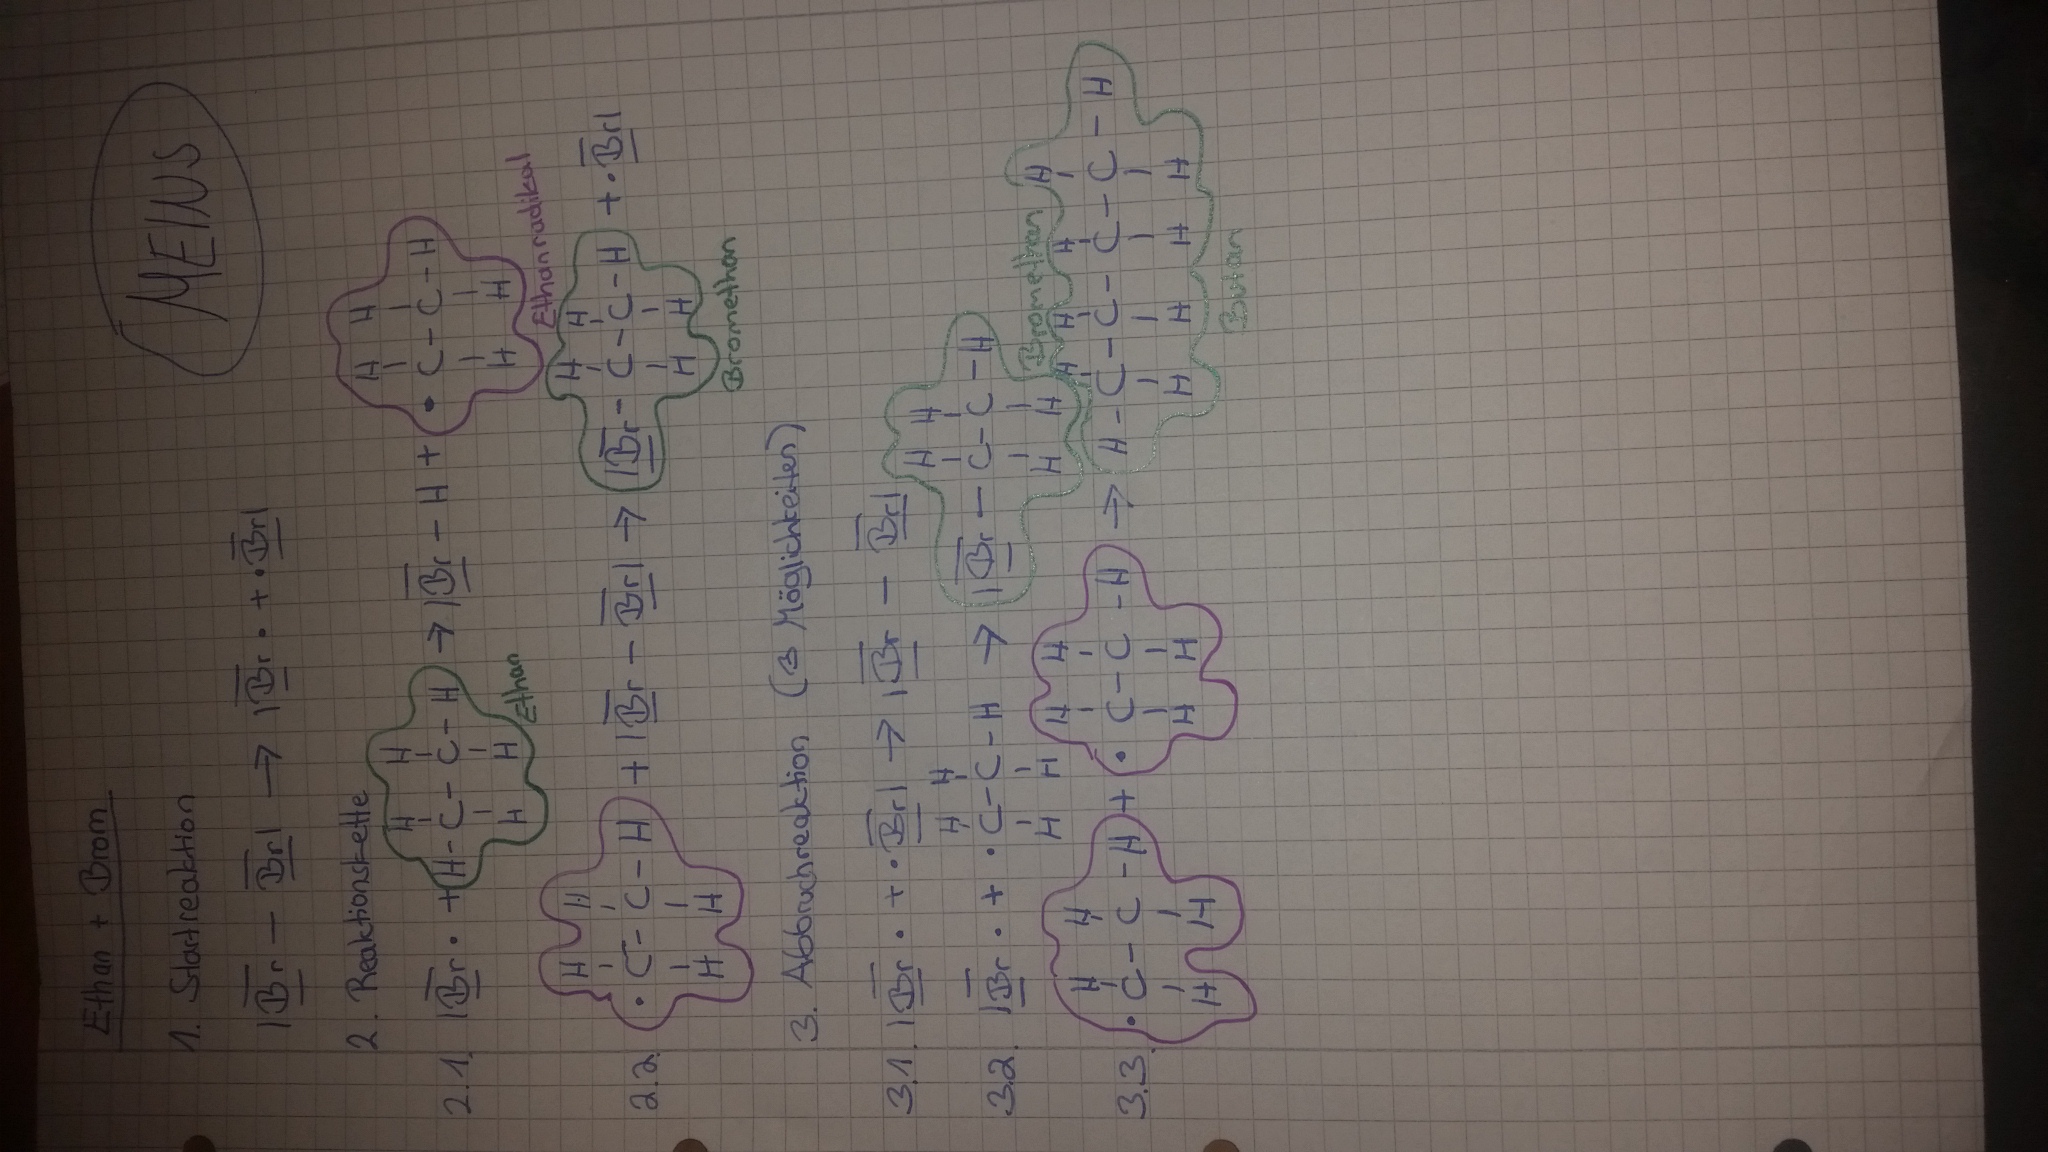 MEINS
Ethan + Brom
1. Startreaktion
|Br − Br| → |Br· + ·Br|
2. Reaktionskette
H H H H
2.1. |Br· + H-C-C-H → |Br-H + ·C-C-H
H H H H
Ethan Ethanradikal
H H H H
2.2. ·C-C-H + |Br-Br| → |Br-C-C-H + ·Br|
H H H H
Bromethan
3. Abbruchreaktion (3 Möglichkeiten)
3.1. |Br· + ·Br| → |Br − Br|
H H H H
3.2. |Br· + ·C-C-H → |Br-C-C-H
H H H H
Bromethan
H H H H H H H H
3.3. ·C-C-H + ·C-C-H → H-C-C-C-C-H
H H H H H H H H
Butan